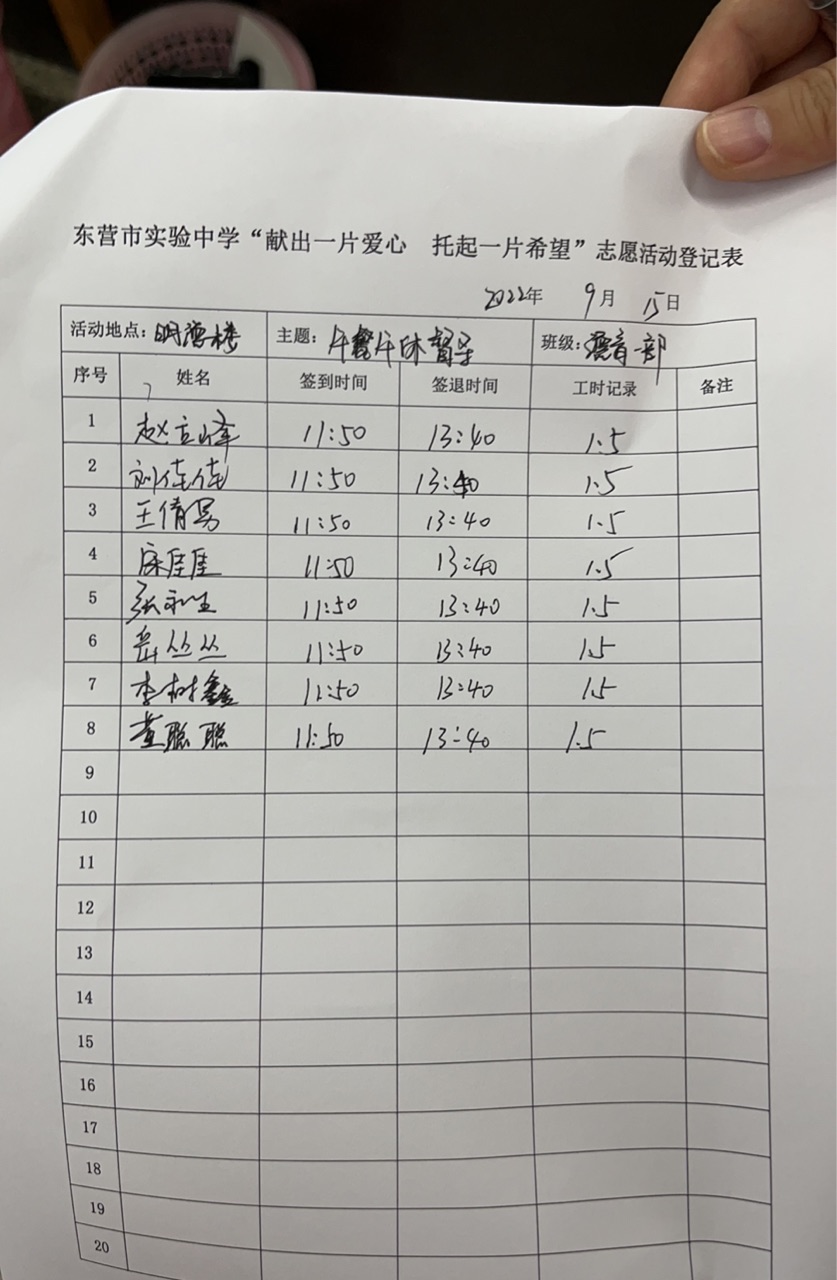 东营市实验中学“献出一片爱心 托起一片希望”志愿活动登记表
2022年 9月 15日
活动地点：明德楼 主题：午餐午休督导 班级：德育一部
序号 姓名 签到时间 签退时间 工时记录 备注
1 赵立峰 11:50 13:40 1.5
2 刘佳佳 11:50 13:40 1.5
3 王倩男 11:50 13:40 1.5
4 11:50 13:40 1.5
5 张 11:50 13:40 1.5
6 岳丛丛 11:50 13:40 1.5
7 李树鑫 11:50 13:40 1.5
8 董聪聪 11:50 13:40 1.5
9
10
11
12
13
14
15
16
17
18
19
20